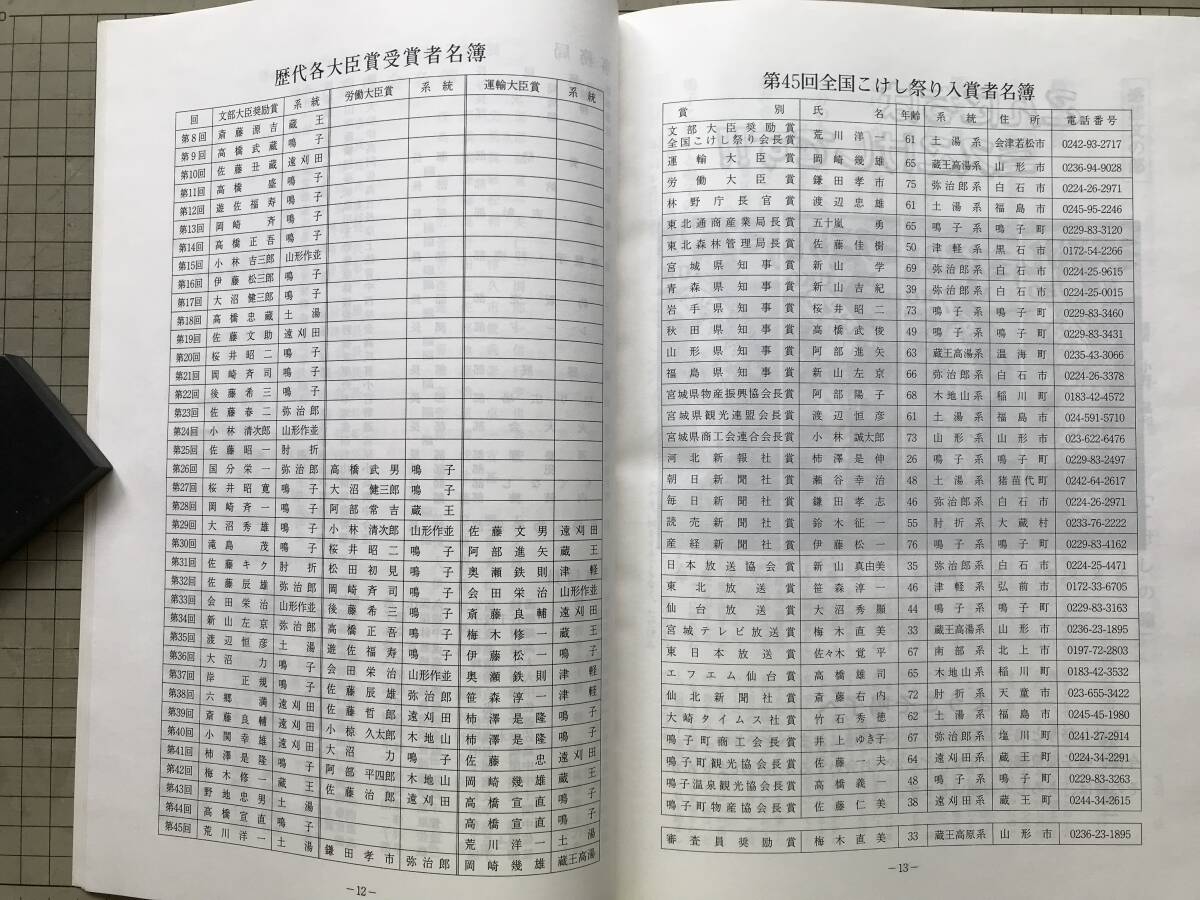 歴代各大臣賞受賞者名簿
回 文部大臣奨励賞 系統 労働大臣賞 系統 運輸大臣賞 系統
第8回 斎藤源吉 蔵王
第9回 高橋武蔵 鳴子
第10回 佐藤丑蔵 遠刈田
第11回 高橋盛 鳴子
第12回 遊佐福寿 鳴子
第13回 岡崎斉 鳴子
第14回 高橋正吾 鳴子
第15回 小林吉三郎 山形作並
第16回 伊藤松三郎 鳴子
第17回 大沼健三郎 鳴子
第18回 高橋忠蔵 土湯
第19回 佐藤文助 遠刈田
第20回 桜井昭二 鳴子
第21回 岡崎斉司 鳴子
第22回 後藤希三 鳴子
第23回 佐藤泰二 弥治郎
第24回 小林清次郎 山形作並
第25回 佐藤昭一 肘折
第26回 国分栄一 弥治郎 高橋武男 鳴子
第27回 桜井昭寛 鳴子 大沼健三郎 鳴子
第28回 岡崎斉一 鳴子 阿部常吉 蔵王
第29回 大沼秀雄 鳴子 小林清次郎 山形作並 佐藤文男 遠刈田
第30回 滝島茂 鳴子 桜井昭二 鳴子 阿部進矢 蔵王
第31回 佐藤キク 肘折 松田初見 鳴子 奥瀬鉄則 津軽
第32回 佐藤辰雄 弥治郎 岡崎斉司 鳴子 会田栄治 山形作並
第33回 会田栄治 山形作並 後藤希三 鳴子 斎藤良輔 遠刈田
第34回 新山左京 弥治郎 高橋正吾 鳴子 梅木修一 蔵王
第35回 渡辺恒彦 土湯 遊佐福寿 鳴子 伊藤松一 鳴子
第36回 大沼力 鳴子 会田栄治 山形作並 奥瀬鉄則 津軽
第37回 岸正規 鳴子 佐藤辰雄 弥治郎 笹森淳一 津軽
第38回 六郷満 遠刈田 佐藤哲郎 遠刈田 柿澤是隆 鳴子
第39回 斎藤良輔 遠刈田 小椋久太郎 木地山 柿澤是隆 鳴子
第40回 小関幸雄 遠刈田 大沼力 鳴子 佐藤忠 遠刈田
第41回 柿澤是隆 鳴子 阿部平四郎 木地山 岡崎幾雄 蔵王
第42回 梅木修一 蔵王 佐藤治郎 遠刈田 高橋宣直 鳴子
第43回 野地忠男 土湯 高橋宣直 鳴子
第44回 高橋宣直 鳴子 荒川洋一 土湯
第45回 荒川洋一 土湯 鎌田孝市 弥治郎 岡崎幾雄 蔵王高湯
−12−
第45回全国こけし祭り入賞者名簿
賞別 氏名 年齢 系統 住所 電話番号
文部大臣奨励賞
全国こけし祭り会長賞 荒川洋一 61 土湯系 会津若松市 0242-93-2717
運輸大臣賞 岡崎幾雄 65 蔵王高湯系 山形市 0236-94-9028
労働大臣賞 鎌田孝市 75 弥治郎系 白石市 0224-26-2971
林野庁長官賞 渡辺忠雄 61 土湯系 福島市 0245-95-2246
東北通商産業局長賞 五十嵐勇 65 鳴子系 鳴子町 0229-83-3120
東北森林管理局長賞 佐藤佳樹 50 津軽系 黒石市 0172-54-2266
宮城県知事賞 新山学 69 弥治郎系 白石市 0224-25-9615
青森県知事賞 新山吉紀 39 弥治郎系 白石市 0224-25-0015
岩手県知事賞 桜井昭二 73 鳴子系 鳴子町 0229-83-3460
秋田県知事賞 高橋武俊 49 鳴子系 鳴子町 0229-83-3431
山形県知事賞 阿部進矢 63 蔵王高湯系 温海町 0235-43-3066
福島県知事賞 新山左京 66 弥治郎系 白石市 0224-26-3378
宮城県物産振興協会長賞 阿部陽子 68 木地山系 稲川町 0183-42-4572
宮城県観光連盟会長賞 渡辺恒彦 61 土湯系 福島市 024-591-5710
宮城県商工会連合会長賞 小林誠太郎 73 山形系 山形市 023-622-6476
河北新報社賞 柿澤是伸 26 鳴子系 鳴子町 0229-83-2497
朝日新聞社賞 瀬谷幸治 48 土湯系 猪苗代町 0242-64-2617
毎日新聞社賞 鎌田孝志 46 弥治郎系 白石市 0224-26-2971
読売新聞社賞 鈴木征一 55 肘折系 大蔵村 0233-76-2222
産経新聞社賞 伊藤松一 76 鳴子系 鳴子町 0229-83-4162
日本放送協会賞 新山真由美 35 弥治郎系 白石市 0224-25-4471
東北放送賞 笹森淳一 46 津軽系 弘前市 0172-33-6705
仙台放送賞 大沼秀顯 44 鳴子系 鳴子町 0229-83-3163
宮城テレビ放送賞 梅木直美 33 蔵王高湯系 山形市 0236-23-1895
東日本放送賞 佐々木覚平 67 南部系 北上市 0197-72-2803
エフエム仙台賞 高橋雄司 65 木地山系 稲川町 0183-42-3532
仙北新聞社賞 斎藤右内 72 肘折系 天童市 023-655-3422
大崎タイムス社賞 竹石秀徳 62 土湯系 福島市 0245-45-1980
鳴子町商工会長賞 井上ゆき子 67 弥治郎系 塩川町 0241-27-2914
鳴子町観光協会長賞 佐藤一夫 64 遠刈田系 蔵王町 0224-34-2291
鳴子温泉観光協会長賞 高橋義一 48 鳴子系 鳴子町 0229-83-3263
鳴子町物産協会長賞 佐藤仁美 38 遠刈田系 蔵王町 0244-34-2615
審査員奨励賞 梅木直美 33 蔵王高原系 山形市 0236-23-1895
−13−